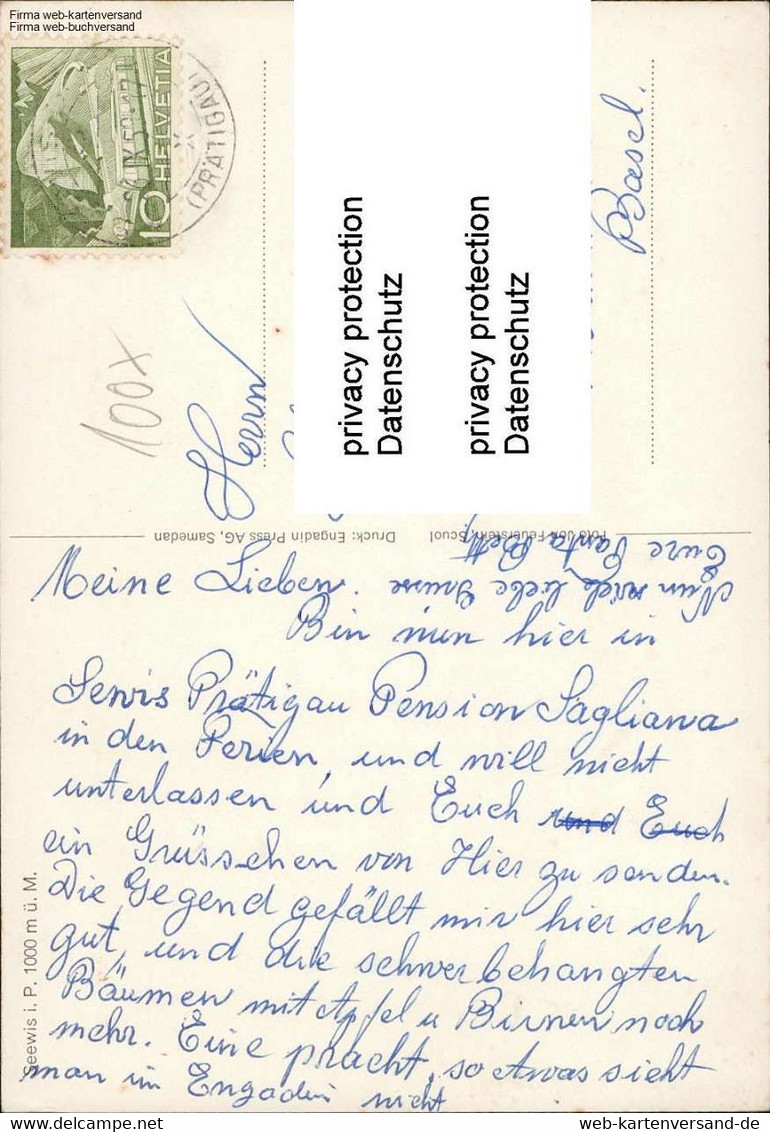 Firma web-kartenversand
Firma web-buchversand
10 HELVETIA
(PRÄTIGAU)
100x
Herrn
Basel.
privacy protection
Datenschutz
privacy protection
Datenschutz
Druck: Engadin Press AG, Samedan
Foto Feuerstein, Scuol
Meine Lieben.
Bin nun hier in
Sewis Prätigau Pension Sagliana
in den Ferien, und will nicht
unterlassen und Euch und Euch
ein Grüsschen von Hier zu senden.
Die Gegend gefällt mir hier sehr
gut, und die schwerbehangten
Bäumen mit Apfel u Birnen noch
mehr. Eine pracht, so etwas sieht
man im Engadin nicht
Nun viele liebe Grüsse
Eure Tanta Betti
Seewis i. P. 1000 m ü. M.
web-kartenversand-de